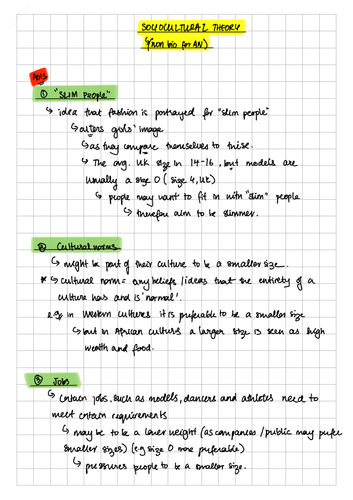 SOCIOCULTURAL THEORY
(non bio for AN)
AO1s
① "SLIM PEOPLE"
↳ idea that fashion is portrayed for "slim people"
↳ alters girls' image
↳ as they compare themselves to these.
↳ The avg. UK size in 14-16, but models are
usually a size 0 (size 4, UK)
↳ people may want to fit in with "slim" people
↳ therefore aim to be slimmer.
② Cultural norms
↳ might be part of their culture to be a smaller size.
* ↳ cultural norm = any beliefs / ideas that the entirety of a
culture has and is 'normal'.
e.g in Western cultures it is preferable to be a smaller size
↳ but in African cultures a larger size is seen as high
wealth and food.
③ Jobs
↳ Certain jobs, such as models, dancers and athletes need to
meet certain requirements
↳ may be to be a lower weight (as companies / public may prefer
smaller sizes) (e.g size 0 more preferable)
↳ pressures people to be a smaller size.